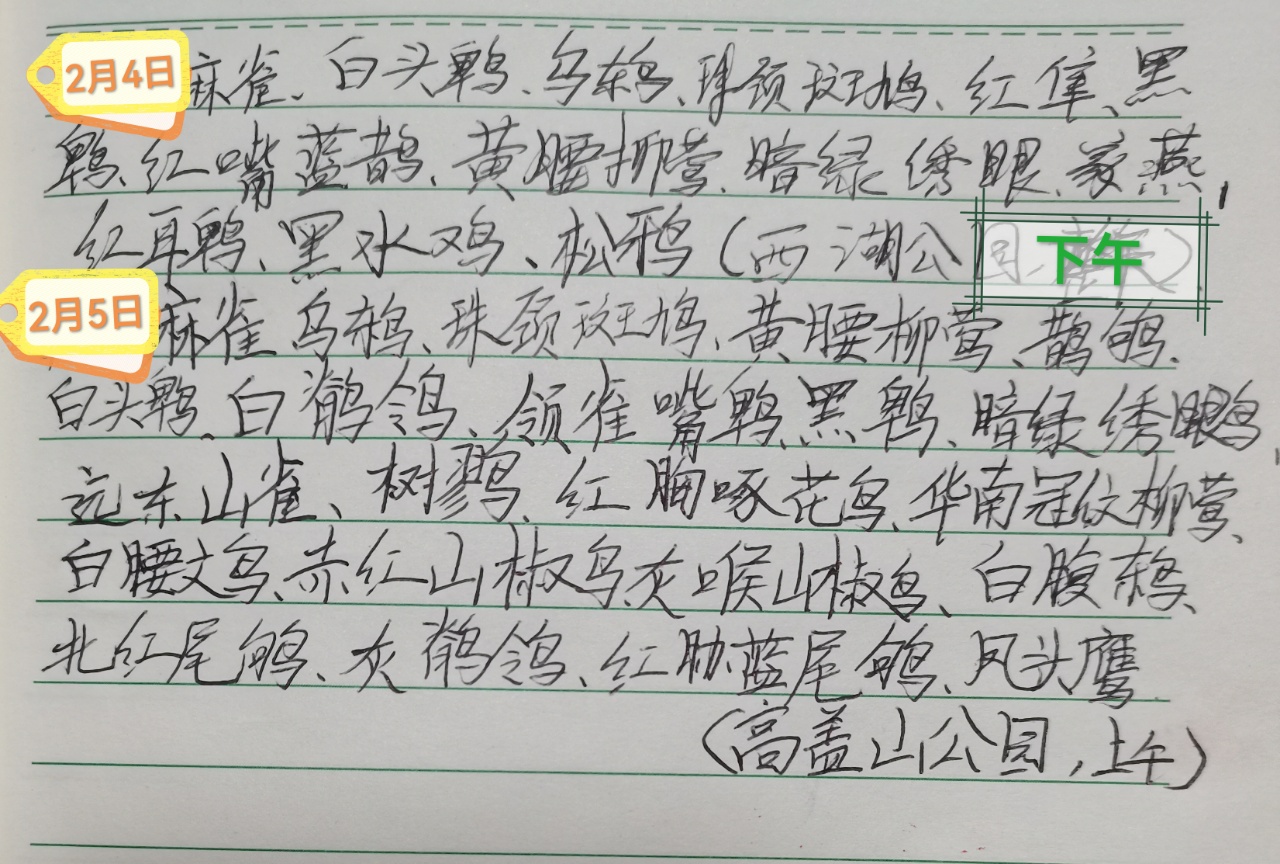 2月4日 麻雀、白头鹎、乌鸫、珠颈斑鸠、红隼、黑
鹎、红嘴蓝鹊、黄腰柳莺、暗绿绣眼、家燕,
红耳鹎、黑水鸡、松鸦(西湖公园、下午)
2月5日 麻雀 乌鸫、珠颈斑鸠、黄腰柳莺、鹊鸲、
白头鹎、白鹡鸰、领雀嘴鹎、黑鹎、暗绿绣眼鸟、
远东山雀、树鹨、红胸啄花鸟、华南冠纹柳莺、
白腰文鸟、赤红山椒鸟、灰喉山椒鸟、白腹鸫、
北红尾鸲、灰鹡鸰、红胁蓝尾鸲、凤头鹰
(高盖山公园,上午)